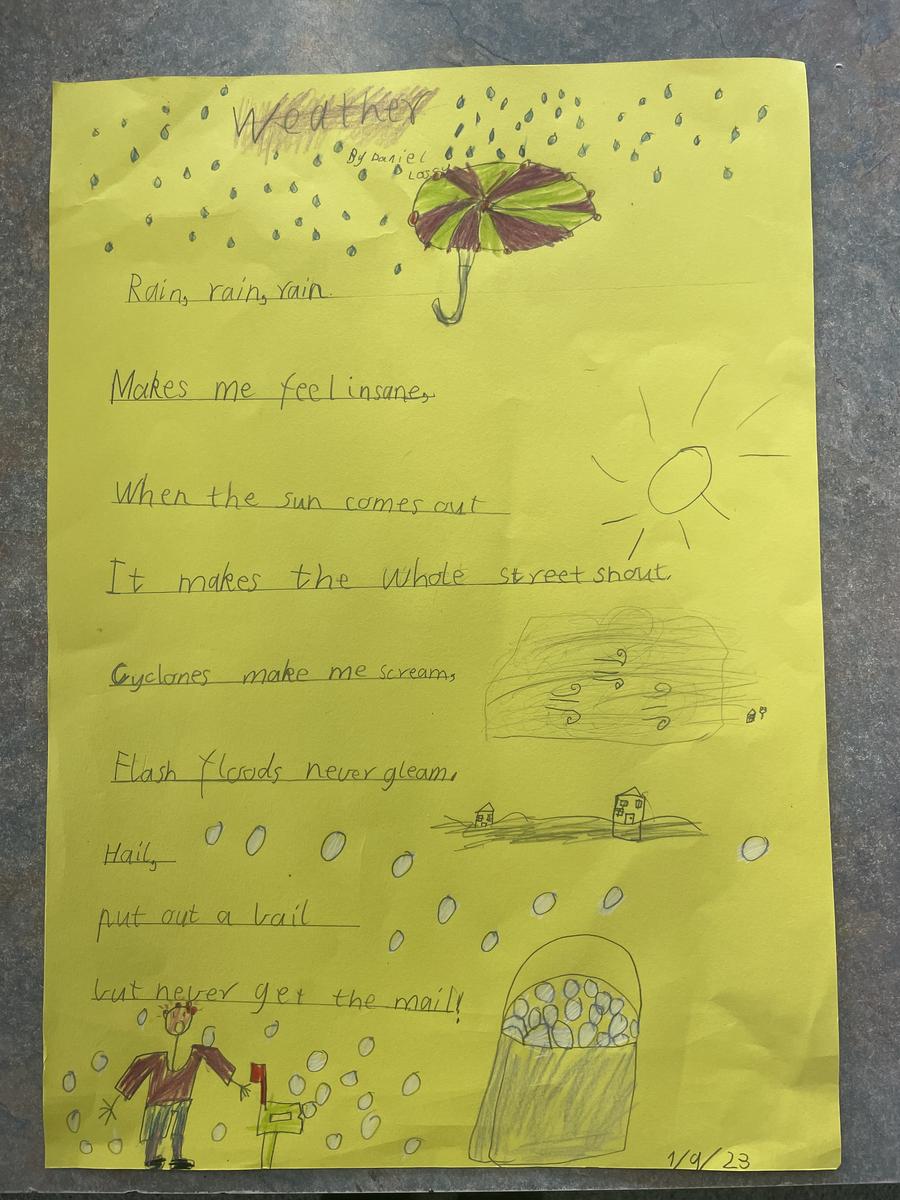 Weather
By Daniel
Rain, rain, rain.
Makes me feel insane,
When the sun comes out
It makes the whole street shout.
Cyclones make me scream,
Flash floods never gleam.
Hail,
put out a bail
but never get the mail!
1/9/23